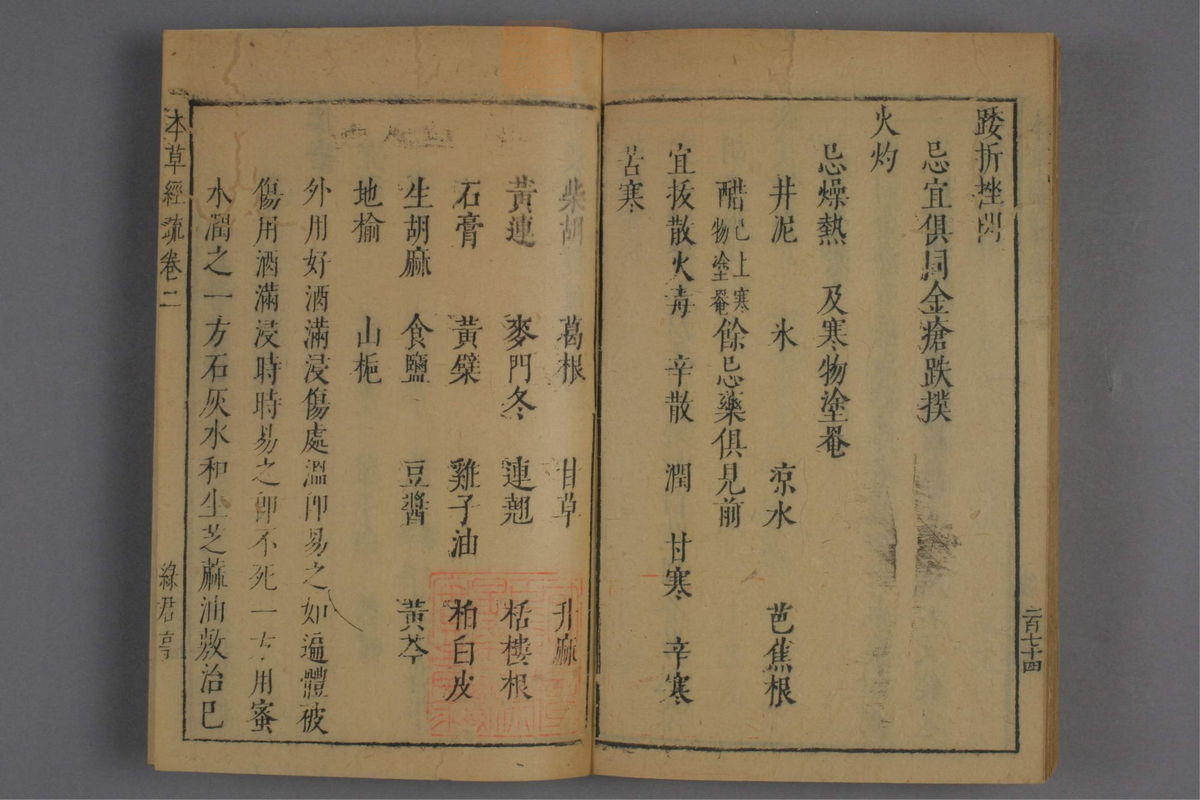 踒折挫閃
忌宜俱同金瘡跌撲
火灼
忌燥熱 及寒物塗罨
井泥 氷 凉水 芭蕉根
醋已上寒物塗罨餘忌藥俱見前
宜拔散火毒 辛散 潤 甘寒 辛寒
苦寒
二百七十四
柴胡 葛根 甘草 升麻
黃連 麥門冬 連翹 栝樓根
石膏 黃檗 雞子油 柏白皮
生胡麻 食鹽 豆醬 黃芩
地榆 山梔
外用好酒滿浸傷處溫卽易之如遍體被
傷用酒滿浸時時易之卽不死一方用蜜
水潤之一方石灰水和生芝蔴油敷治已
本草經疏卷二
綠君亭